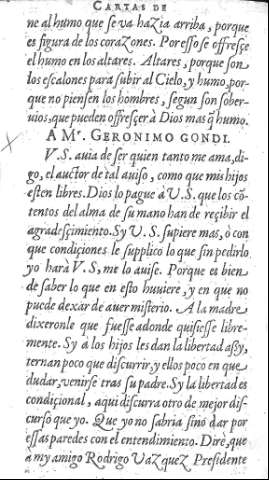 CARTAS DE
ne al humo que se va hazia arriba, porque
es figura de los corazones. Por esso se offresçe
el humo en los altares. Altares, porque son
los escalones para subir al Cielo, y humo, por-
que no piensen los hombres, segun son sober-
uios, que pueden offresçer à Dios mas q̃ humo.
A Mʳ. GERONIMO GONDI.
V.S. auia de ser quien tanto me ama, di-
go, el auctor de tal auiso, como que mis hijos
esten libres. Dios lo pague à V.S. que los cõ-
tentos del alma de su mano han de reçibir el
agradesçimiento. Sy V.S. supiere mas, ò con
que condiçiones le supplico lo que sin pedirlo
yo harà V.S, me lo auise. Porque es bien
de saber lo que en esto huuiere, y en que no
puede dexar de auer misterio. A la madre
dixeronle que fuesse adonde quisiesse libre-
mente. Sy à los hijos les dan la libertad assy,
ternan poco que discurrir, y ellos poco en que
dudar, venirse tras su padre. Sy la libertad es
condiçional, aqui discurra otro de mejor dis-
curso que yo. Que yo no sabria sinò dar por
essas paredes con el entendimiento. Dirè, que
a my amigo Rodrigo Vazquez Presidente